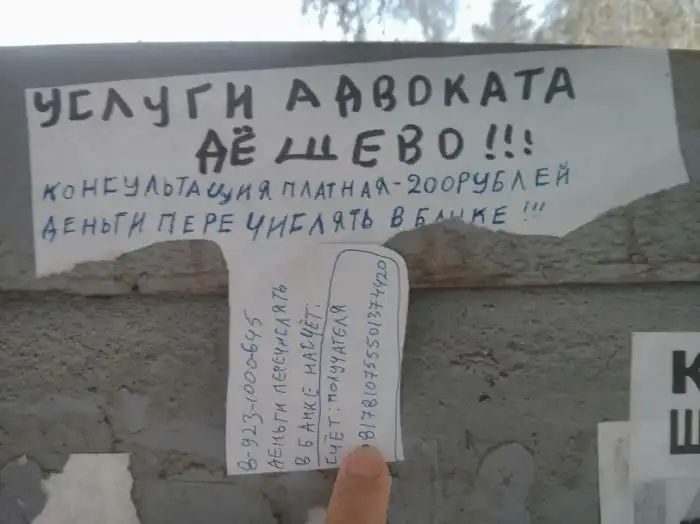 УСЛУГИ АДВОКАТА
ДЁШЕВО!!!
КОНСУЛЬТАЩИЯ ПЛАТНАЯ-200РУБЛЕЙ
ДЕНЬГИ ПЕРЕЧИСЛЯТЬ В БАНКЕ!!!
8-923-1000645
ДЕНЬГИ ПЕРЕЧИСЛЯТЬ
В БАНКЕ НАСЧЁТ:
СЧЁТ: ПОЛУЧАТЕЛЯ
К
Ш